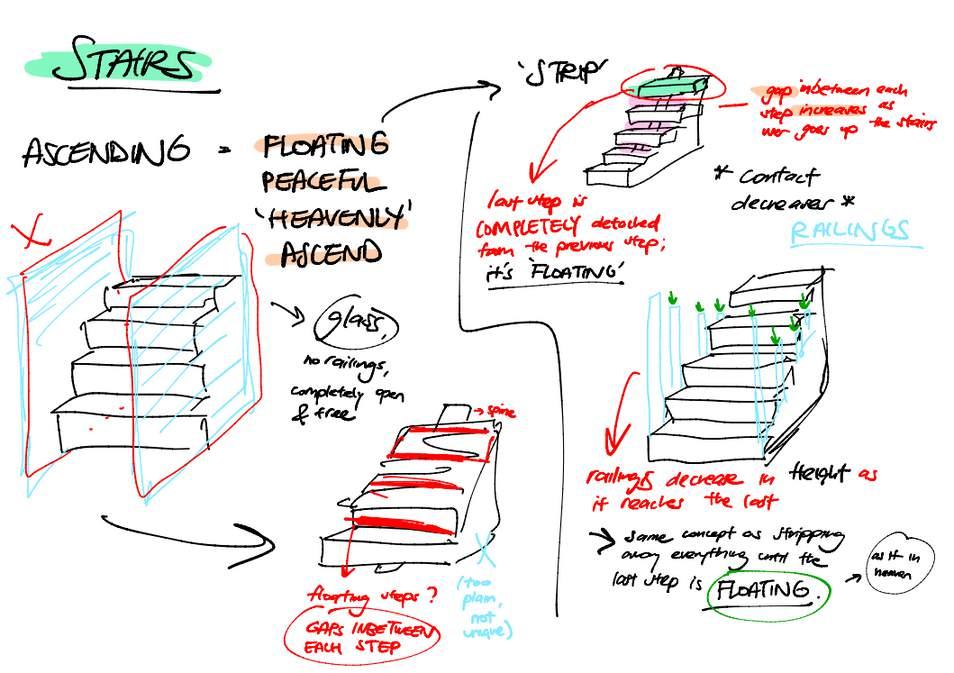 STAIRS
ASCENDING = FLOATING
PEACEFUL
'HEAVENLY'
ASCEND
X
glass,
no railings,
completely open
& free
→ spine
floating steps?
GAPS INBETWEEN
EACH STEP
X
(too
plain,
not
unique)
'STRIP'
gap inbetween each
step increases as
user goes up the stairs
* Contact
decreases *
last step is
COMPLETELY detached
from the previous step;
it's 'FLOATING'
RAILINGS
railings decrease in Height as
it reaches the last
→ same concept as stripping
away everything until the
last step is FLOATING.
→ as if in
heaven